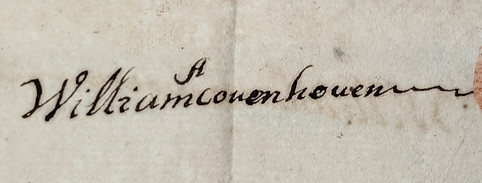 William A couenhouen